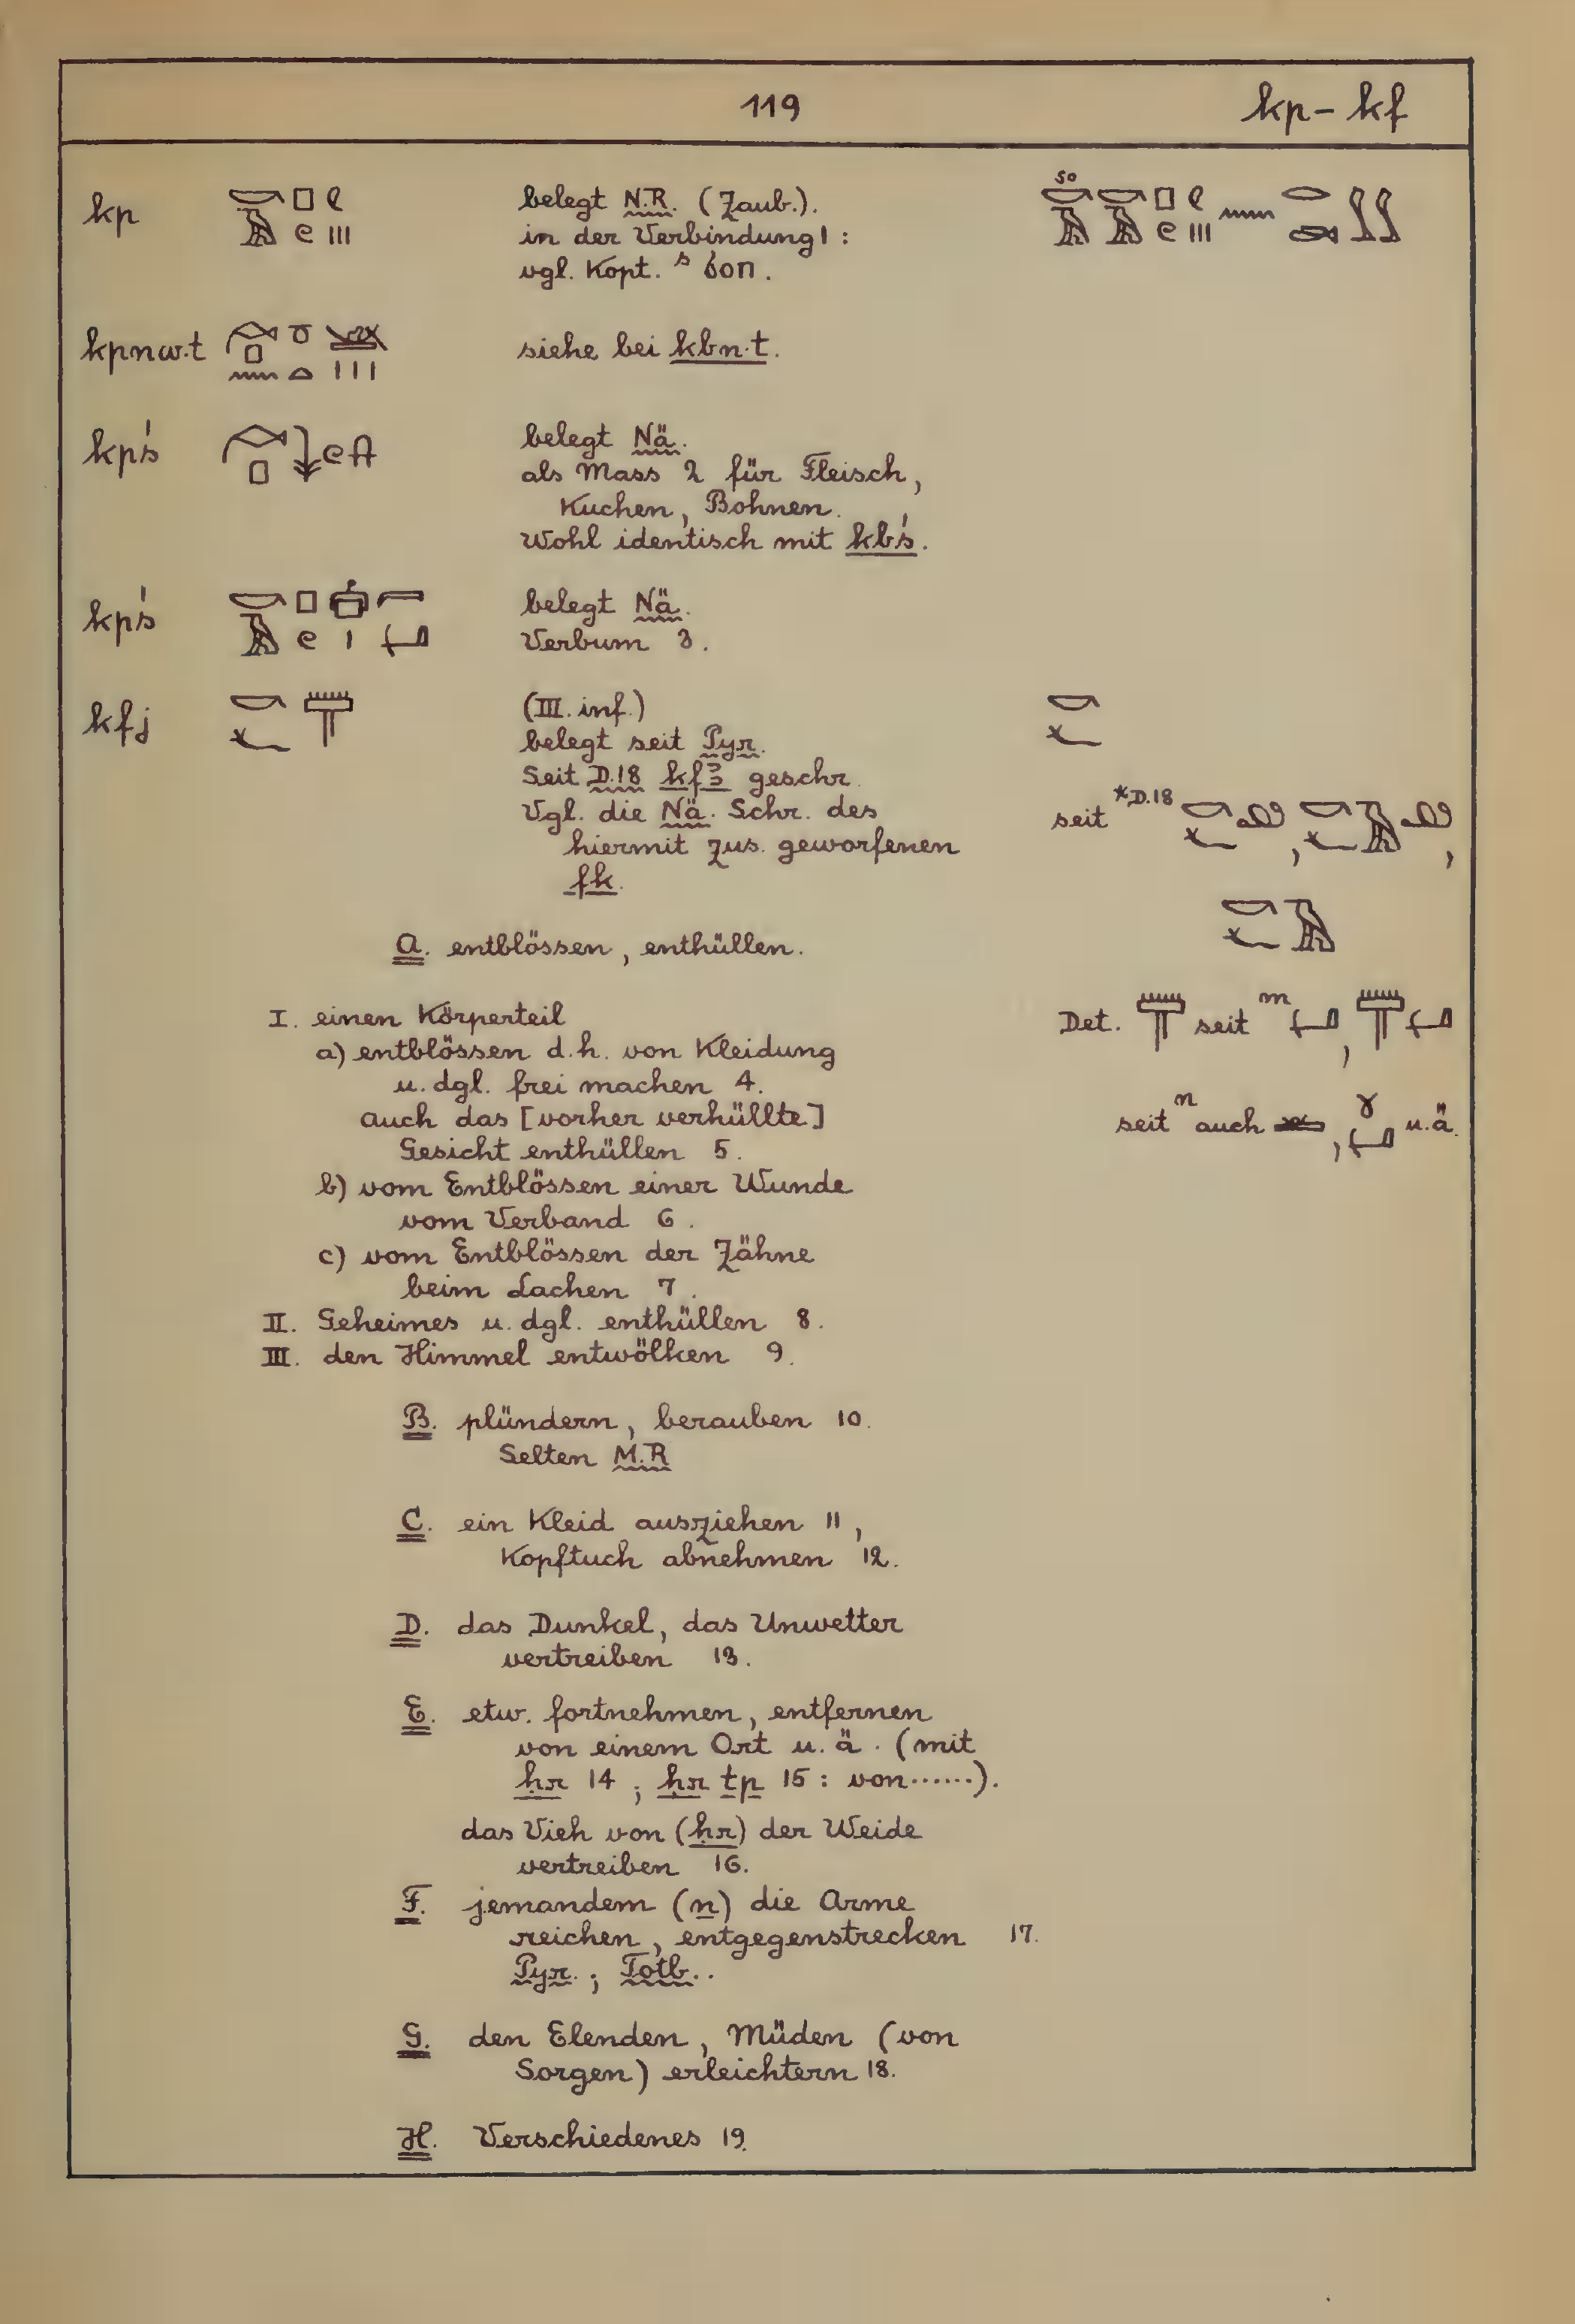 119 kp – kf
kp belegt N.R. (Zaub.).
in der Verbindung 1 :
vgl. Kopt. ˢ ϭοπ.
kpnw.t siehe bei kbn.t.
kpś belegt Nä.
als Mass 2 für Fleisch,
Kuchen, Bohnen.
Wohl identisch mit kbś.
kpś belegt Nä.
Verbum 3.
kfj (III. inf.)
belegt seit Pyr.
Seit D.18 kfꜣ geschr.
Vgl. die Nä. Schr. des
hiermit zus. geworfenen
fk.
seit *D.18
A. entblössen, enthüllen.
I. einen Körperteil
a) entblössen d.h. von Kleidung
u. dgl. frei machen 4.
auch das [vorher verhüllte]
Gesicht enthüllen 5.
b) vom Entblössen einer Wunde
vom Verband 6.
c) vom Entblössen der Zähne
beim Lachen 7.
II. Geheimes u. dgl. enthüllen 8.
III. den Himmel entwölken 9.
Det. seit m
seit n auch , u.ä.
B. plündern, berauben 10.
Selten M.R
C. ein Kleid ausziehen 11,
Kopftuch abnehmen 12.
D. das Dunkel, das Unwetter
vertreiben 13.
E. etw. fortnehmen, entfernen
von einem Ort u. ä. (mit
ḥr 14 ; ḥr tp 15 : von ......).
das Vieh von (ḥr) der Weide
vertreiben 16.
F. jemandem (n) die Arme
reichen, entgegenstrecken 17.
Pyr. ; Totb..
G. den Elenden, Müden (von
Sorgen) erleichtern 18.
H. Verschiedenes 19.